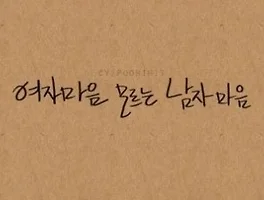 여자마음 모르는 남자마음